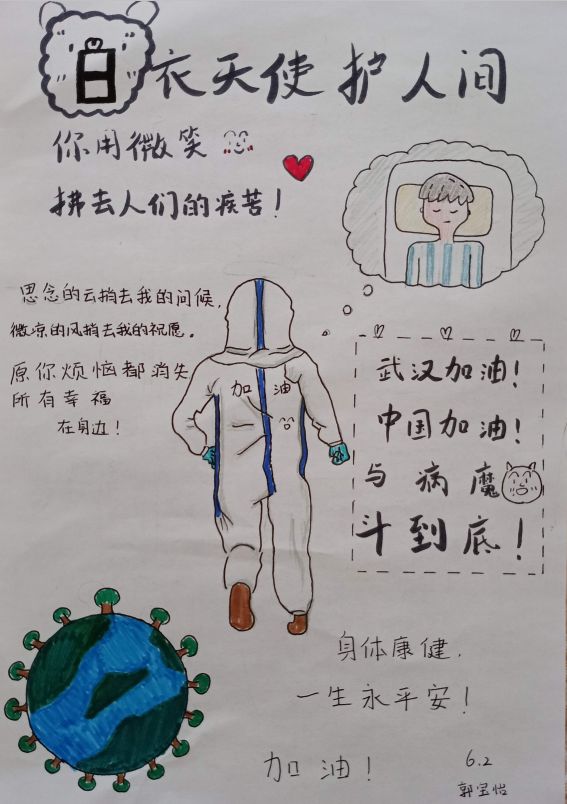 白衣天使护人间
你用微笑
拂去人们的疾苦！
思念的云捎去我的问候，
微凉的风捎去我的祝愿。
原你烦恼都消失
所有幸福
在身边！
加油
武汉加油！
中国加油！
与病魔
斗到底！
身体康健，
一生永平安！
加油！
6.2
郭宝怡